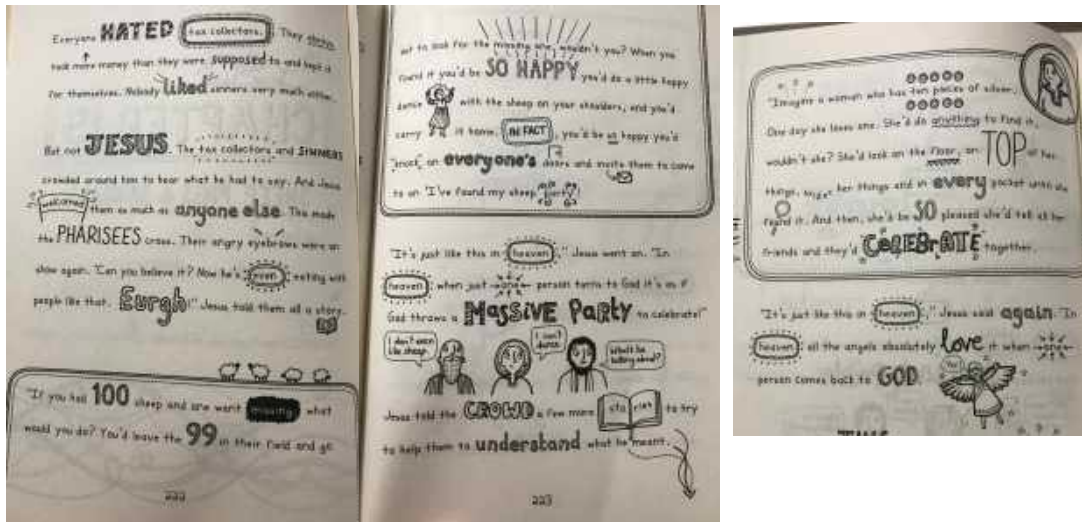 Everyone HATED tax collectors. They always
took more money than they were supposed to and kept it
for themselves. Nobody liked sinners very much either.
But not JESUS. The tax collectors and SINNERS
crowded around him to hear what he had to say. And Jesus
welcomed them as much as anyone else. This made
the PHARISEES cross. Their angry eyebrows were on
show again. "Can you believe it? Now he's even eating with
people like that. Eurgh!" Jesus told them all a story.
"If you had 100 sheep and one went missing what
would you do? You'd leave the 99 in their field and go
222
out to look for the missing one, wouldn't you? When you
found it you'd be SO HAPPY you'd do a little happy
dance with the sheep on your shoulders, and you'd
carry it home. IN FACT, you'd be so happy you'd
"knock" on everyone's doors and invite them to come
to an 'I've found my sheep party'.
"It's just like this in heaven," Jesus went on. "In
heaven, when just one person turns to God it's as if
God throws a MASSIVE PARTY to celebrate!"
I don't even like sheep.
I can't dance.
What's he talking about?
Jesus told the CROWD a few more stories to try
to help them to understand what he meant.
223
"Imagine a woman who has ten pieces of silver.
One day she loses one. She'd do anything to find it,
wouldn't she? She'd look on the floor, on TOP of her
things, under her things and in every pocket until she
found it. And then, she'd be SO pleased she'd tell all her
friends and they'd CELEBRATE together.
"It's just like this in heaven," Jesus said again. "In
heaven, all the angels absolutely love it when one
person comes back to GOD.